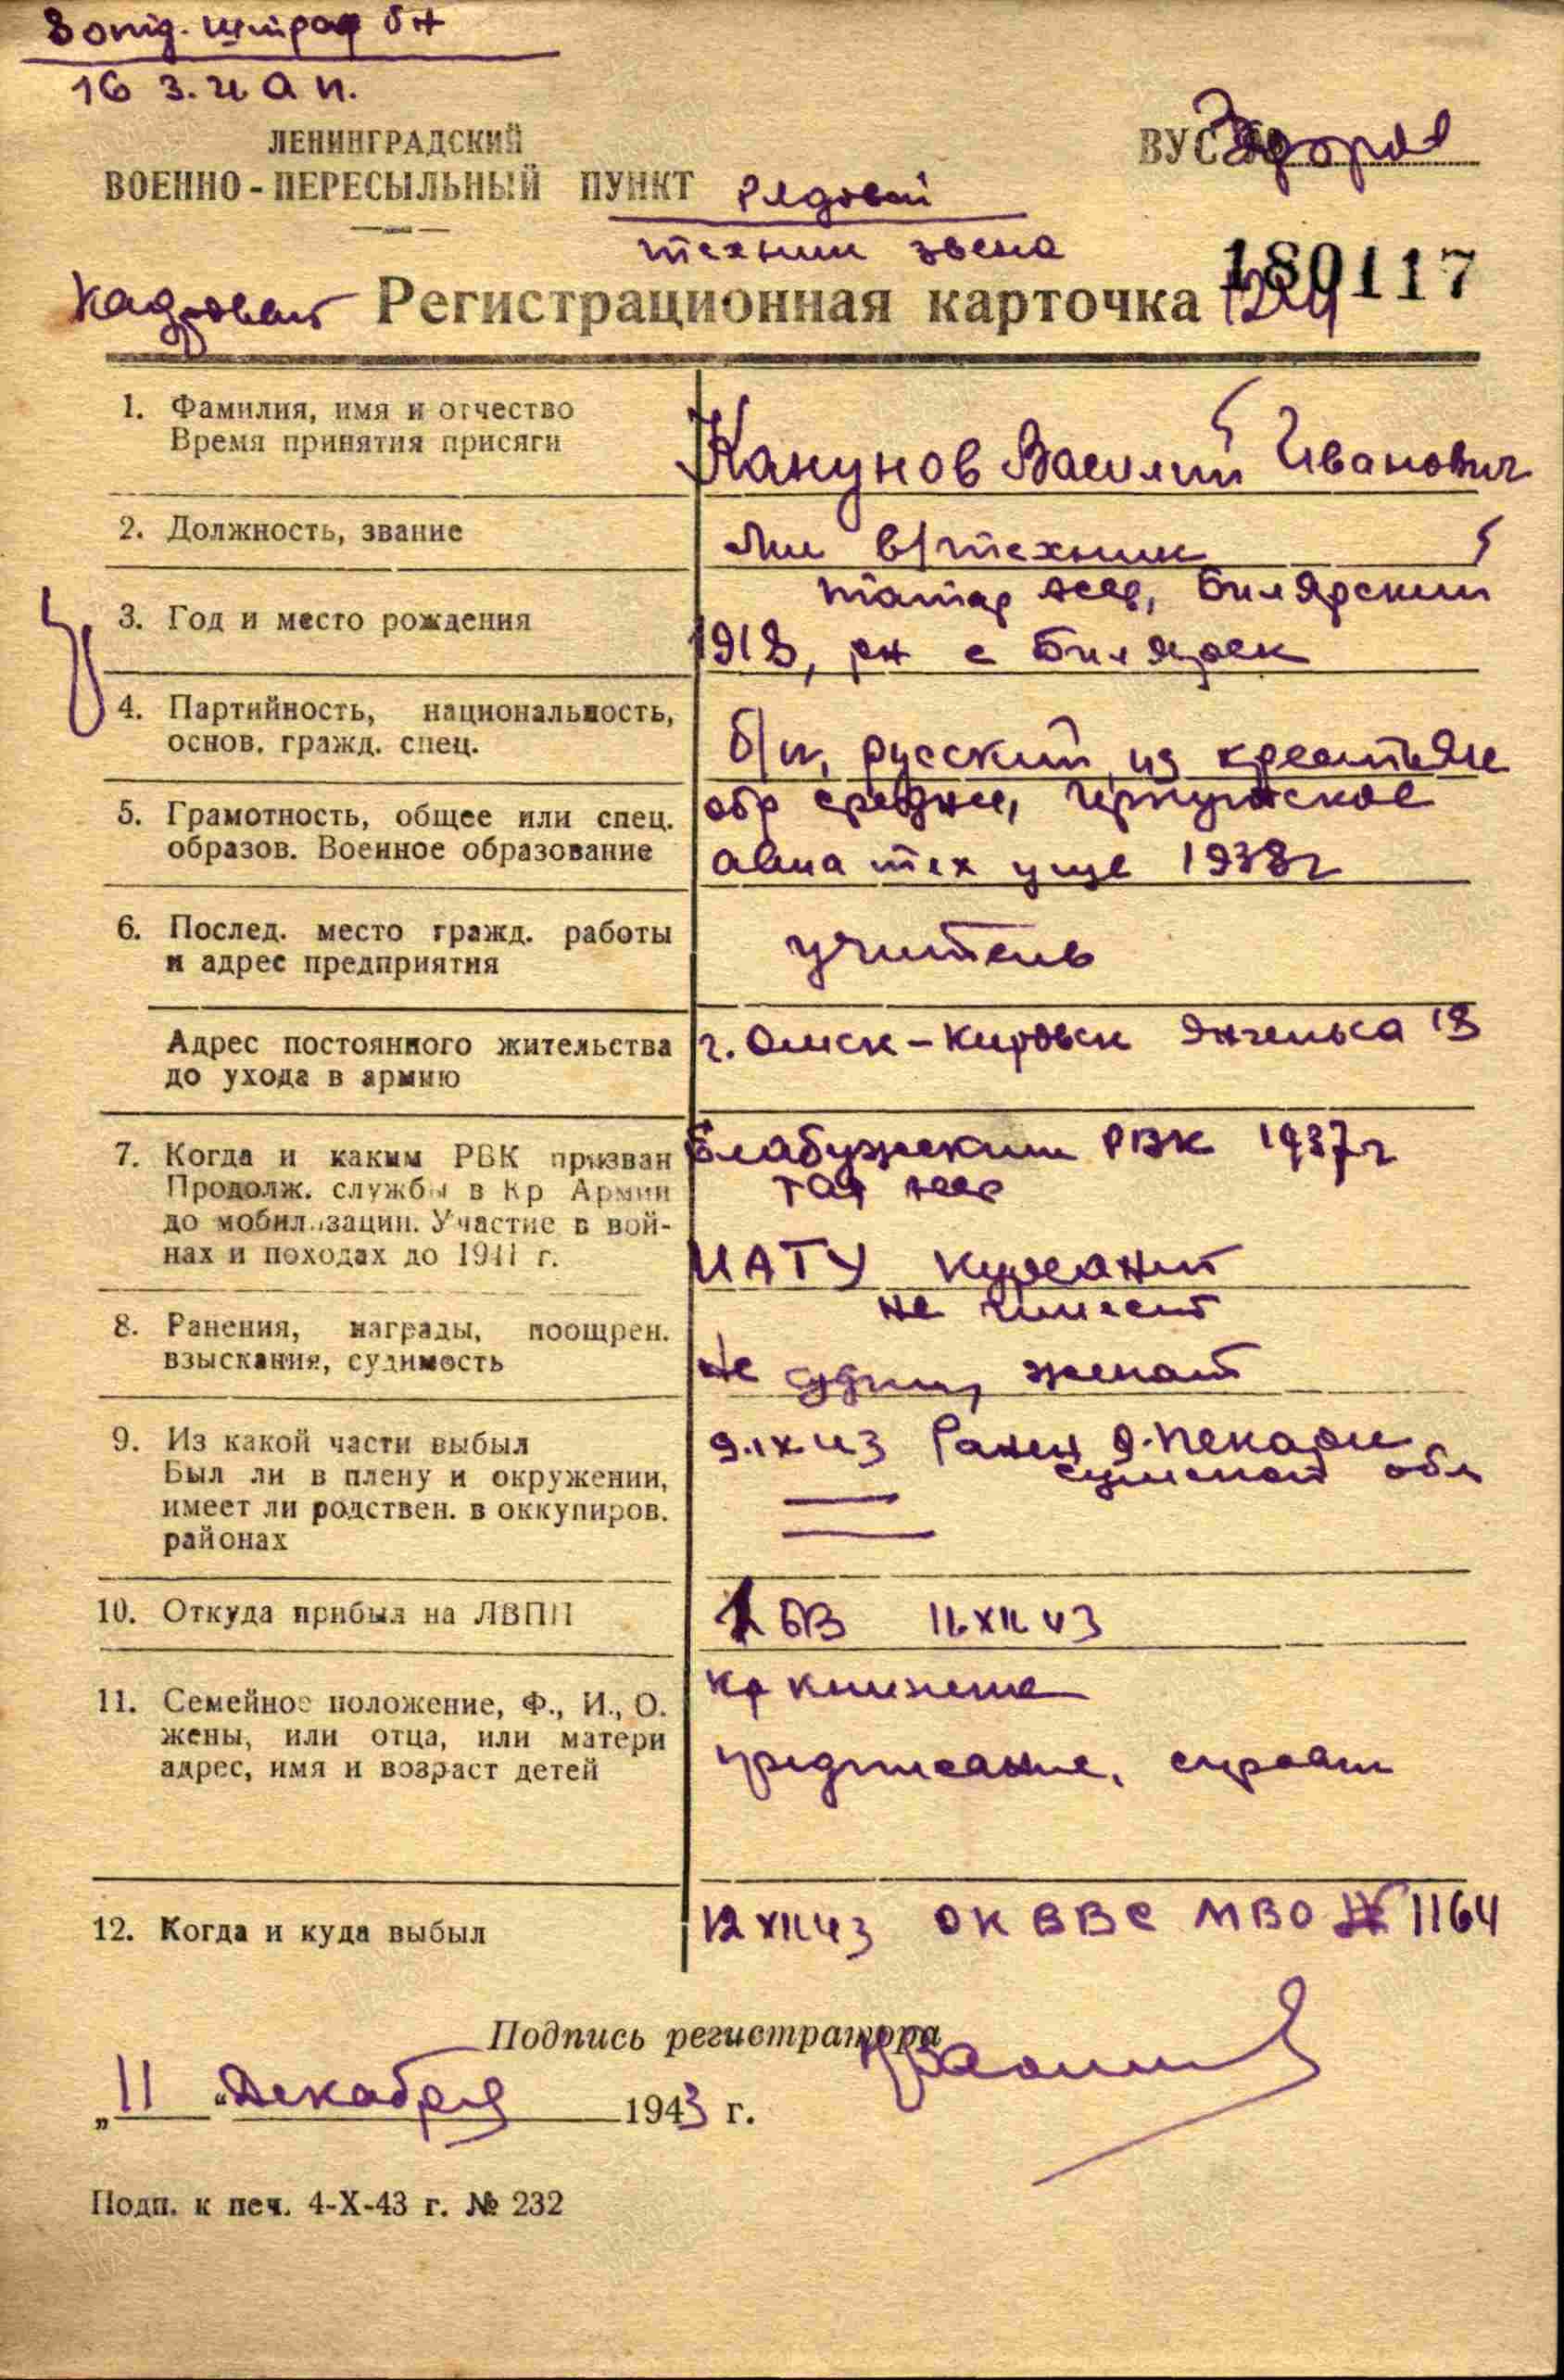 8 отд. штраф бн
16 з. и а п.
ЛЕНИНГРАДСКИЙ
ВОЕННО-ПЕРЕСЫЛЬНЫЙ ПУНКТ
ВУС Здоров
Рядовой
техник звена
180117
Кадровый Регистрационная карточка
1. Фамилия, имя и отчество
Время принятия присяги
Канунов Василий Иванович
2. Должность, звание
Мл в/техник
3. Год и место рождения
татар ССР, Билярский
1918, рн с Билярск
4. Партийность, национальность,
основ. гражд. спец.
б/п, русский, из крестьян
5. Грамотность, общее или спец.
образов. Военное образование
обр средне, Иркутское
авиа тех уще 1938г
6. Послед. место гражд. работы
и адрес предприятия
учитель
Адрес постоянного жительства
до ухода в армию
г. Омск-Кировск 18
7. Когда и каким РВК призван
Продолж. службы в Кр Армии
до мобилизации. Участие в вой-
нах и походах до 1941 г.
Елабужским РВК 1937г
ИАТУ Курсант
8. Ранения, награды, поощрен.
взыскания, судимость
не имеет
не судим, женат
9. Из какой части выбыл
Был ли в плену и окружении,
имеет ли родствен. в оккупиров.
районах
9.IX 43 Ранен д. Пекари
сумской обл
10. Откуда прибыл на ЛВПП
БВ 11.XII 43
11. Семейное положение, Ф., И., О.
жены, или отца, или матери
адрес, имя и возраст детей
кр книжка
предписание, справки
12. Когда и куда выбыл
12 XII 43 ОК ВВС МВО № 1164
Подпись регистратора
„11" Декабря 1943 г.
Подп. к печ. 4-X-43 г. № 232